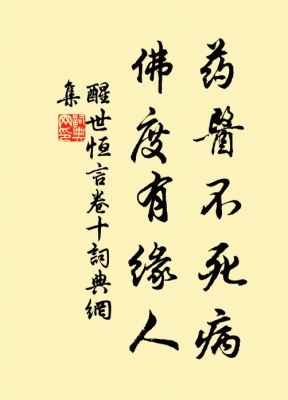 药醫不死病
佛度有緣人
醒世恒言卷十詞典網
集